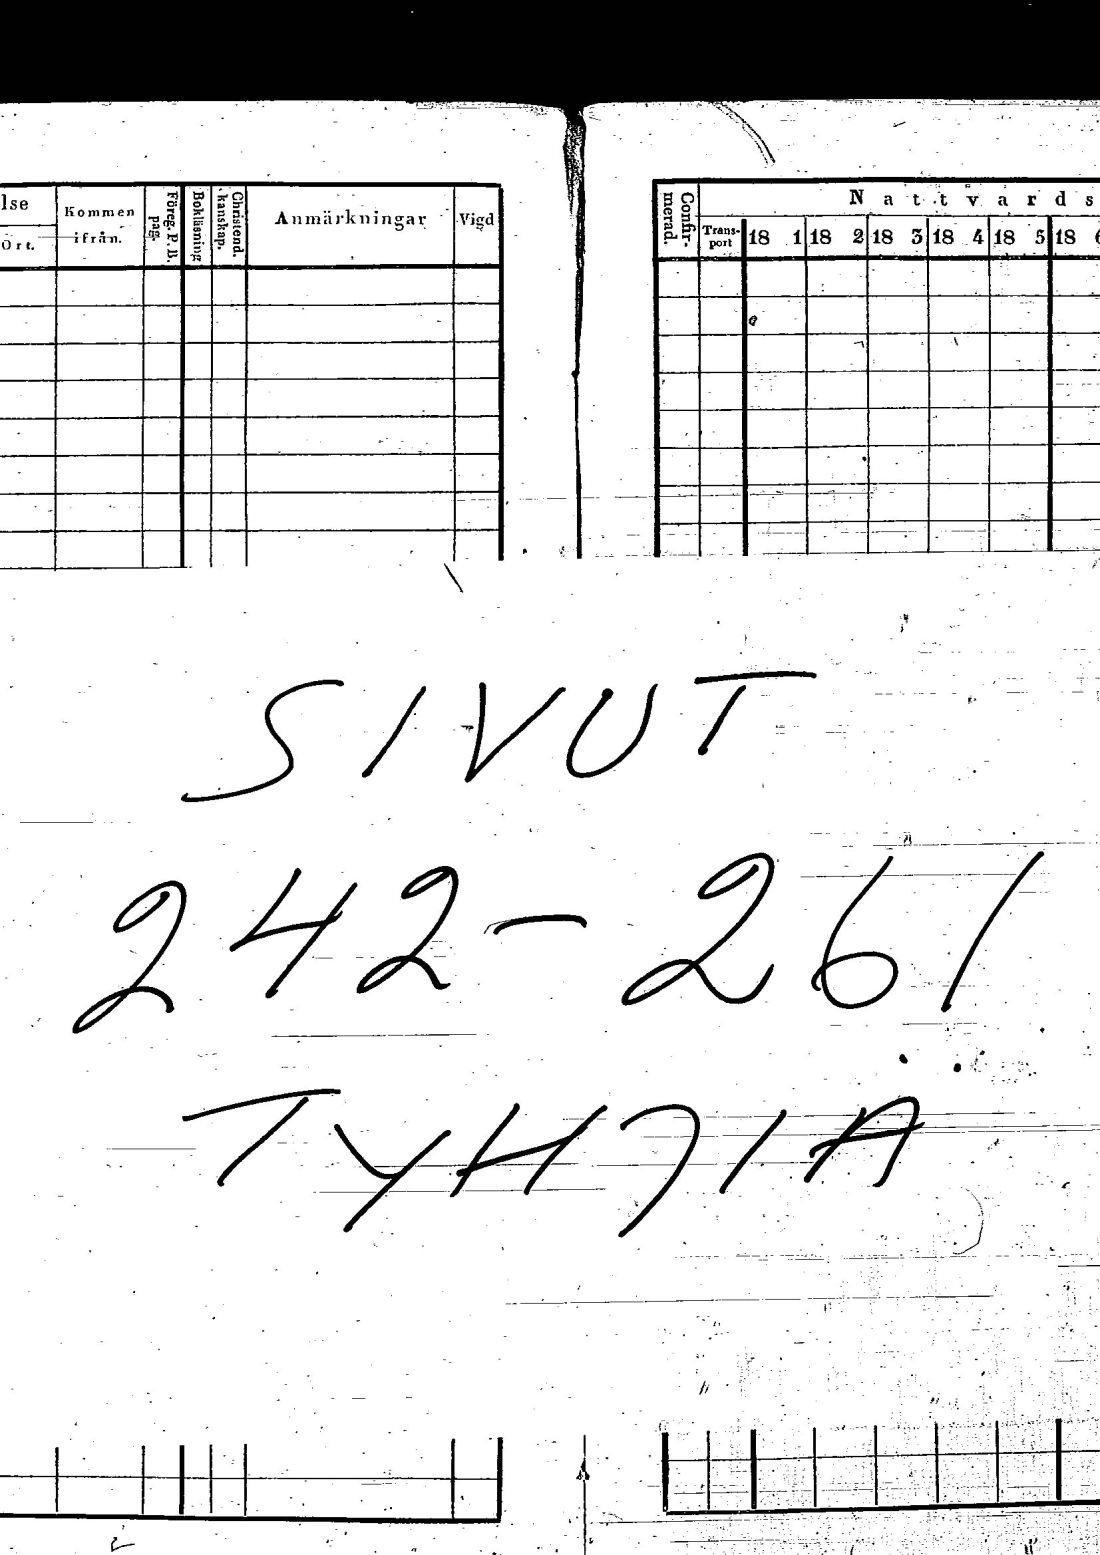 lse
Ort.
Kommen
ifrån.
Föreg. P. B.
pag.
Bokläsning
Christend.
kanskap.
Anmärkningar
Vigd
Confir-
merad.
Nattvards
Trans-
port
18 1 18 2 18 3 18 4 18 5 18 6
SIVUT
242-261
TYHJIÄ